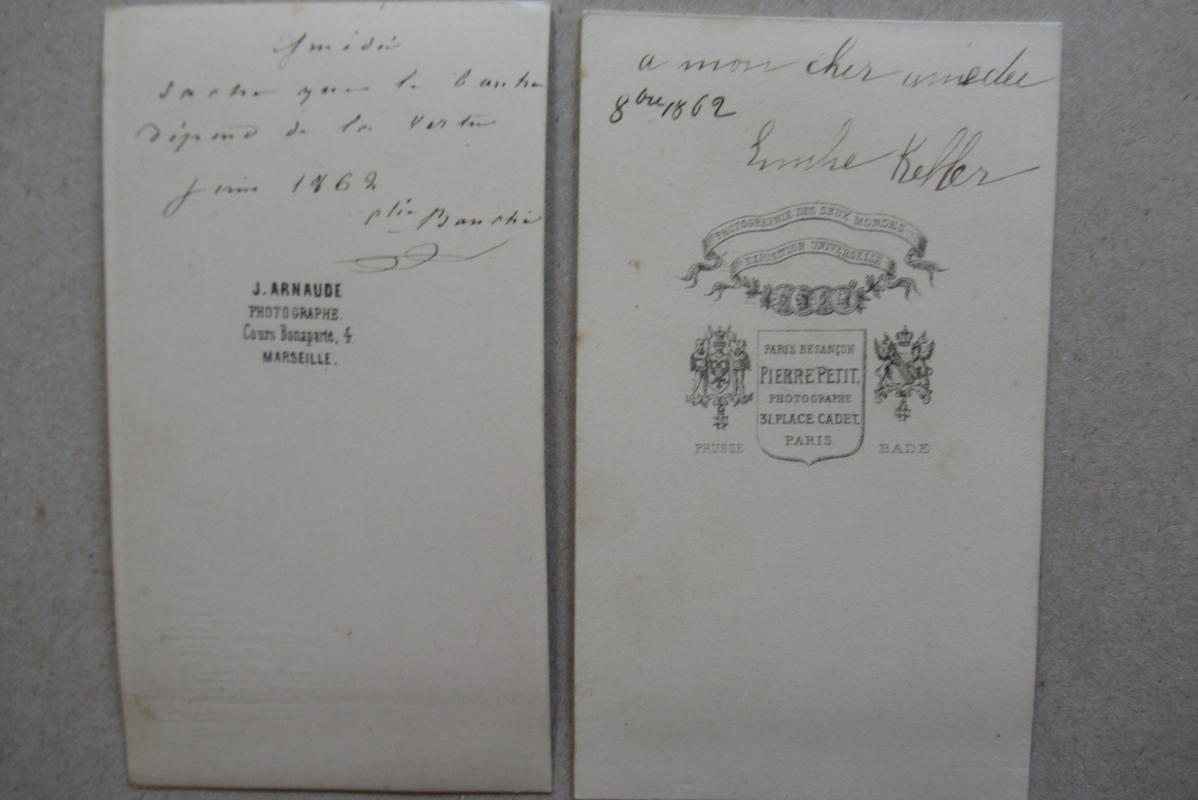 Amédé
sache que le bonhr
dépend de la vertu
juin 1862
J. ARNAUDE
PHOTOGRAPHE.
Cours Bonaparte, 4.
MARSEILLE.
a mon cher amedee
8bre 1862
Keller
PHOTOGRAPHIE DES DEUX MONDES
EXPOSITION UNIVERSELLE
PARIS BESANÇON
PIERRE PETIT,
PHOTOGRAPHE
31, PLACE CADET,
PARIS
PRUSSE
BADE